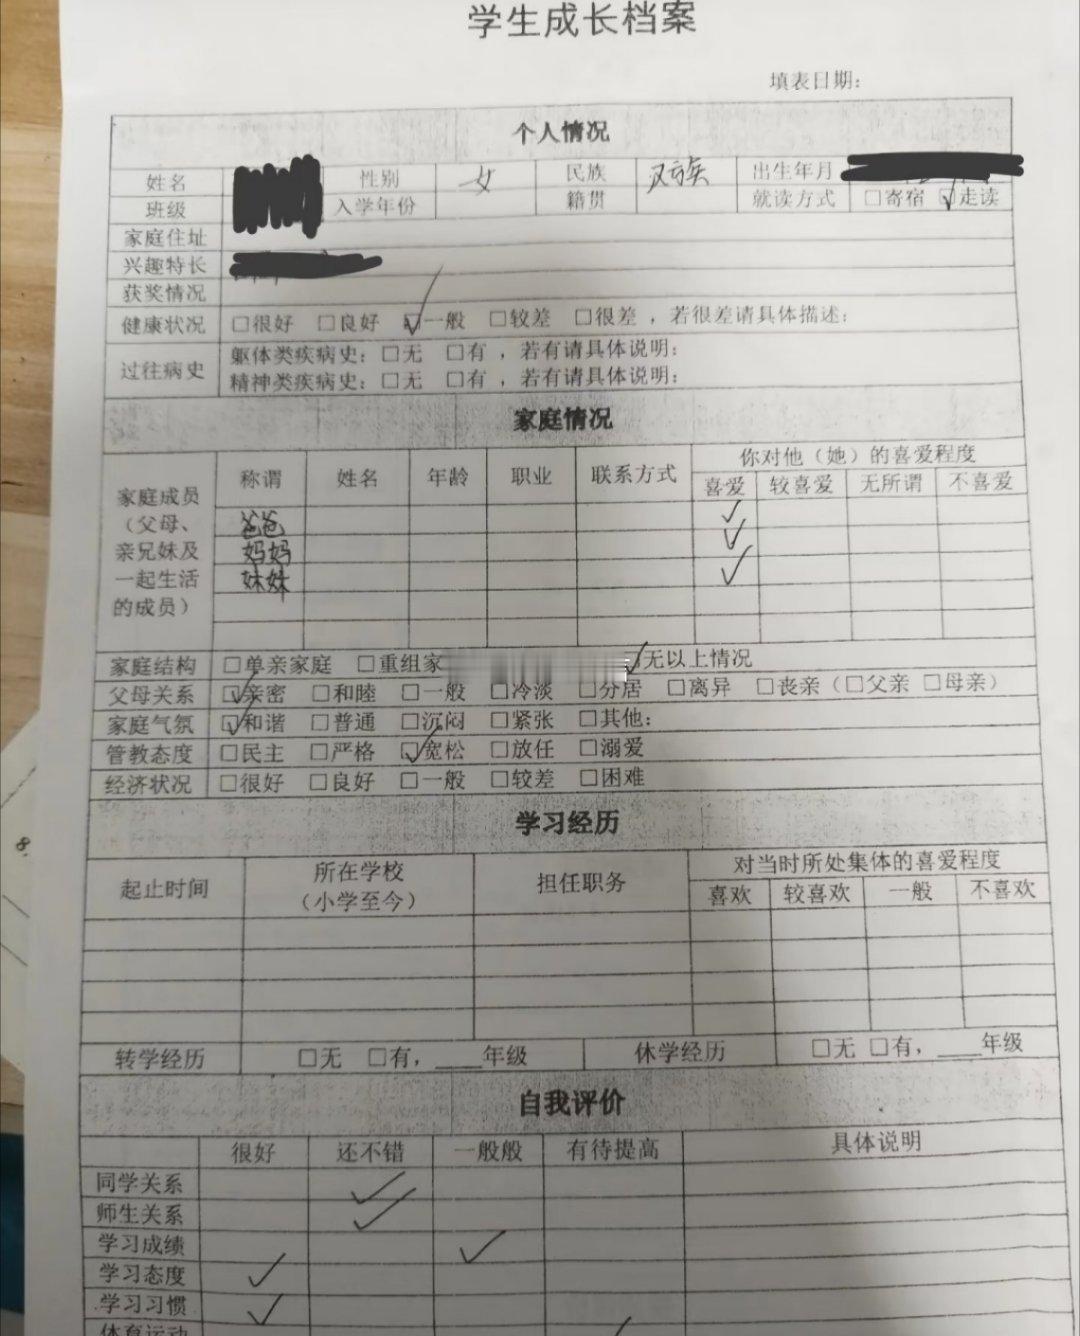 学生成长档案
填表日期：
个人情况
姓名 性别 女 民族 汉族 出生年月
班级 入学年份 籍贯 就读方式 □寄宿 ☑走读
家庭住址
兴趣特长
获奖情况
健康状况 □很好 □良好 ☑一般 □较差 □很差，若很差请具体描述：
过往病史 躯体类疾病史：□无 □有，若有请具体说明：
精神类疾病史：□无 □有，若有请具体说明：
家庭情况
家庭成员（父母、亲兄妹及一起生活的成员） 称谓 姓名 年龄 职业 联系方式 你对他（她）的喜爱程度
喜爱 较喜爱 无所谓 不喜爱
爸爸 ✓
妈妈 ✓
妹妹 ✓
家庭结构 □单亲家庭 □重组家 ☑无以上情况
父母关系 ☑亲密 □和睦 □一般 □冷淡 □分居 □离异 □丧亲（□父亲 □母亲）
家庭气氛 ☑和谐 □普通 □沉闷 □紧张 □其他：
管教态度 □民主 □严格 ☑宽松 □放任 □溺爱
经济状况 □很好 □良好 □一般 □较差 □困难
学习经历
起止时间 所在学校（小学至今） 担任职务 对当时所处集体的喜爱程度
喜欢 较喜欢 一般 不喜欢
转学经历 □无 □有，____年级 休学经历 □无 □有，____年级
自我评价
很好 还不错 一般般 有待提高 具体说明
同学关系 ✓
师生关系 ✓
学习成绩 ✓
学习态度 ✓
学习习惯 ✓
体育运动
8.